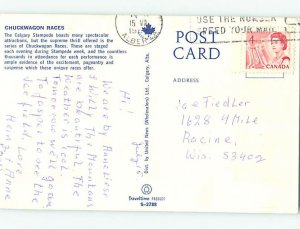 CHUCKWAGON RACES
The Calgary Stampede boasts many spectacular
attractions, but the supreme thrill is the
series of Chuckwagon Races. These are staged
each evening during Stampede week, and the
countless thousands in attendance for each
performance is ample evidence of the excitement, pageantry and
suspense which these unique races offer.
15 VI
ALBERTA
USE THE NUMBER
SPEED YOUR MAIL
CANADA
POST
CARD
ADDRESS
Joe Fiedler
1628 4 Mile
Racine,
Wis. 53402
Hi!
We are by Anneliese
The Mountains
are beautiful. The
weather is cool.
Tomorrow we'll go on
to Jasper to see the
Ice field. Love,
Anne
Dist. by United News (Wholesalers) Ltd., Calgary, Alta.
Traveltime PRODUCT
S-3788